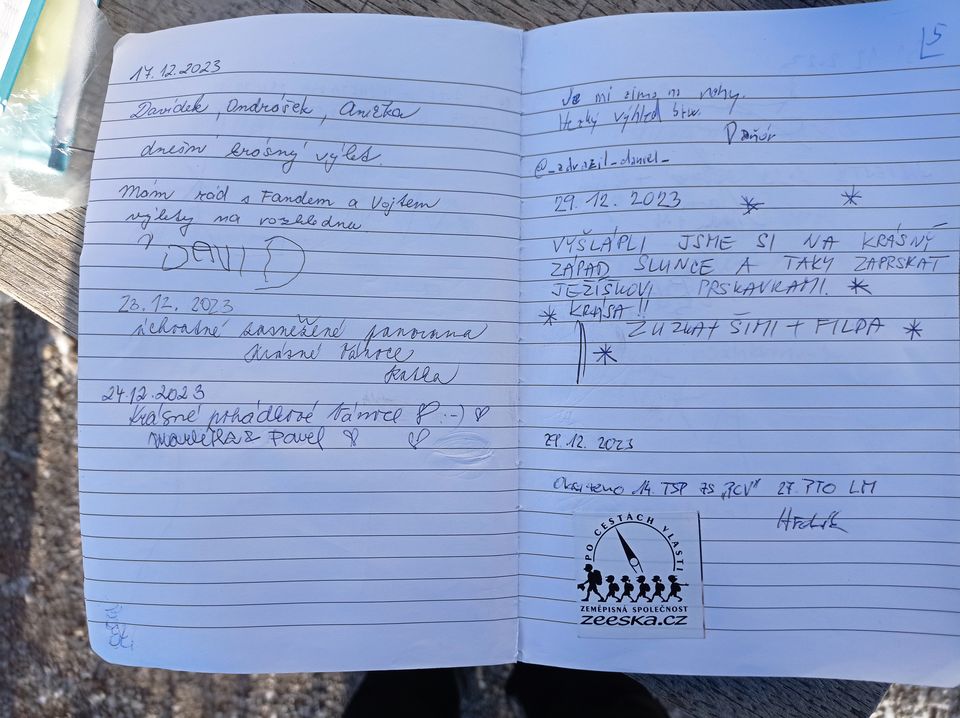 17.12.2023
Davídek, Ondrášek, Anežka
dnešní krásný výlet.
Mám rád s Fandem a Vojtem
výlety na rozhlednu
DAVID
23.12. 2023
úchvatné zasněžené panorama
Krásné Vánoce
Katka
24.12.2023
Krásné pohádkové Vánoce :-)
Markétka & Pavel
5
Je mi zima na nohy.
Hezký výhled btw.
@_zdrazil_daniel_
29.12. 2023
VYŠLÁPLI JSME SI NA KRÁSNÝ
ZÁPAD SLUNCE A TAKY ZAPRSKAT
JEŽÍŠKOVI PRSKAVKAMI.
KRÁSA!!
ZUZKA + ŠIMI + FILDA
29.12. 2023
14. TSP ZS „PCV" 27. PTO LM
PO CESTÁCH VLASTI
ZEMĚPISNÁ SPOLEČNOST
zeeska.cz